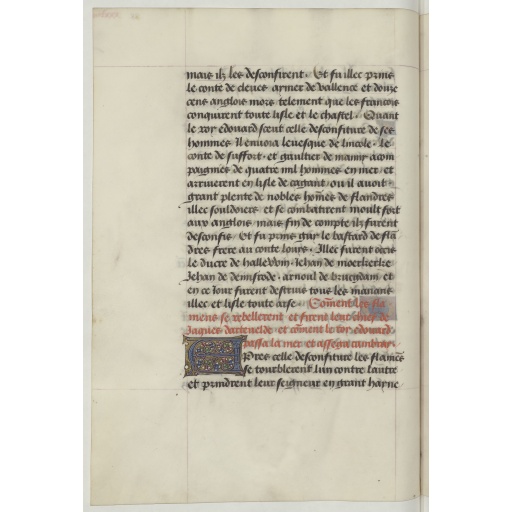 mais ilz les desconfirent. Et fu illec prins
le conte de cleues aymer de vallence et douze
cens anglois mors telement que les francois
conquirent toute lisle et le chastel. Quant
le roy edouard sceut celle desconfiture de ses
hommes Il enuoia leuesque de lincole. le
conte de suffort. et gaultier de manny acom
paignies de quatre mil hommes en mer. et
arriuerent en lisle de cagant. ou il auoit
grant plente de nobles hommes de flandres
illec souldoiers et se combatirent moult fort
aux anglois mais fin de compte ilz furent
desconfis Et fu prins guy le bastard de flan
dres frere au conte loys. Illec furent occis
le ducre de hallewin. Jehan de moerkerke
Jehan de
en ce Jour furent destruis tous les manans
illec et lisle toute arse. Comment les fla
mens se rebellerent et firent leur chief de
Jaques dartevelde et comment le roy edouard
passa la mer et assega cambray.
Apres celle desconfiture les flamens
se tourblerent lun contre lautre
et prindrent leur seigneur en grant hayne